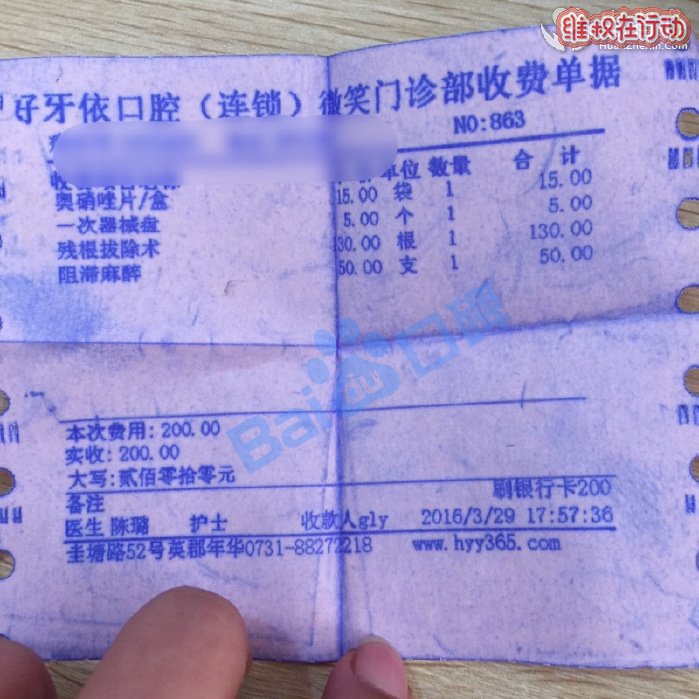 维权在行动
好牙依口腔（连锁）微笑门诊部收费单据
NO:863
单位 数量 合 计
奥硝唑片/盒 15.00 袋 1 15.00
一次器械盘 5.00 个 1 5.00
残根拔除术 130.00 根 1 130.00
阻滞麻醉 50.00 支 1 50.00
Bai 口碑
本次费用: 200.00
实收: 200.00
大写: 贰佰零拾零元
刷银行卡200
备注
医生 陈璐 护士 收款人gly 2016/3/29 17:57:36
圭塘路52号英郡年华0731-88272218 www.hyy365.com